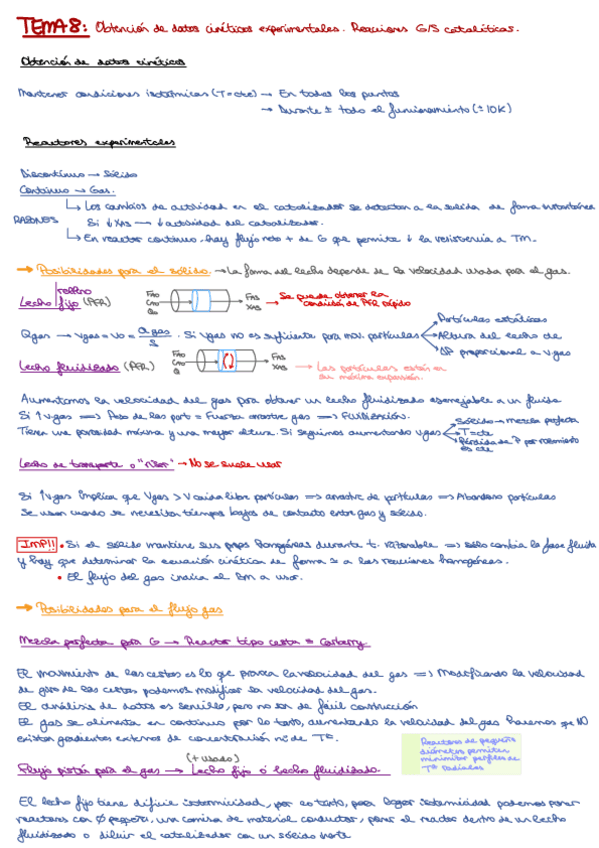 TEMA 8: Obtención de datos cinéticos experimentales. Reacciones G/S catalíticas.
Obtención de datos cinéticos
Mantener condiciones isotérmicas (T=cte) → En todos los puntos
→ Durante ± todo el funcionamiento (±10K)
Reactores experimentales
Discontinuo → Sólido
Continuo → Gas.
RAZONES
↳ Los cambios de actividad en el catalizador se detectan a la salida de forma instantánea
Si ↓XAS → ↓actividad del catalizador.
↳ En reactor continuo, hay flujo neto + de G que permite ↓ la resistencia a TM.
→ Posibilidades para el sólido. → La forma del lecho depende de la velocidad usada para el gas.
relleno
Lecho fijo (PFR)
FAO
CAO
Qo
FAS
XAS
→ Se puede obtener la condición de PFR rápido
Qgas → vgas = vo = Q gas / S . Si vgas no es suficiente para mov. partículas
Partículas estáticas
Altura del lecho cte
ΔP proporcional a vgas
Lecho fluidizado (PFR)
FAO
CAO
Q
FAS
XAS
→ Las partículas están en su máxima expansión.
Aumentamos la velocidad del gas para obtener un lecho fluidizado asemejable a un fluido
Si ↑vgas ⟹ Peso de las part = Fuerza arrastre gas ⟹ Fluidización.
Tienen una porosidad máxima y una mayor altura. Si seguimos aumentando vgas
Sólido → mezcla perfecta
T=cte
Pérdida de P por rozamiento es cte
Lecho de transporte o "riser" → No se suele usar
Si ↑vgas implica que vgas > v caída libre partículas ⟹ arrastre de partículas ⟹ Abandono partículas
Se usan cuando se necesitan tiempos bajos de contacto entre gas y sólido.
IMP!! • Si el sólido mantiene sus props homogéneas durante t. razonable ⟹ sólo cambia la fase fluida
y hay que determinar la ecuación cinética de forma ≃ a las reacciones homogéneas.
• El flujo del gas indica el BM a usar.
→ Posibilidades para el flujo gas
Mezcla perfecta para G → Reactor tipo cesta = Carberry
El movimiento de las cestas es lo que provoca la velocidad del gas ⟹ Modificando la velocidad
de giro de las cestas podemos modificar la velocidad del gas.
El análisis de datos es sencillo, pero no son de fácil construcción
El gas se alimenta en continuo por lo tanto, aumentando la velocidad del gas hacemos que NO
existan gradientes externos de concentración ni de Tª.
Reactores de pequeño
diámetro permiten
minimizar perfiles de
Tª radiales
(+ usado)
Flujo pistón para el gas → Lecho fijo o lecho fluidizado.
El lecho fijo tiene difícil isotermicidad, por es tanto, para lograr isotermicidad podemos poner
reactores con Ø pequeño, una camisa de material conductor, poner el reactor dentro de un lecho
fluidizado o diluir el catalizador con un sólido inerte